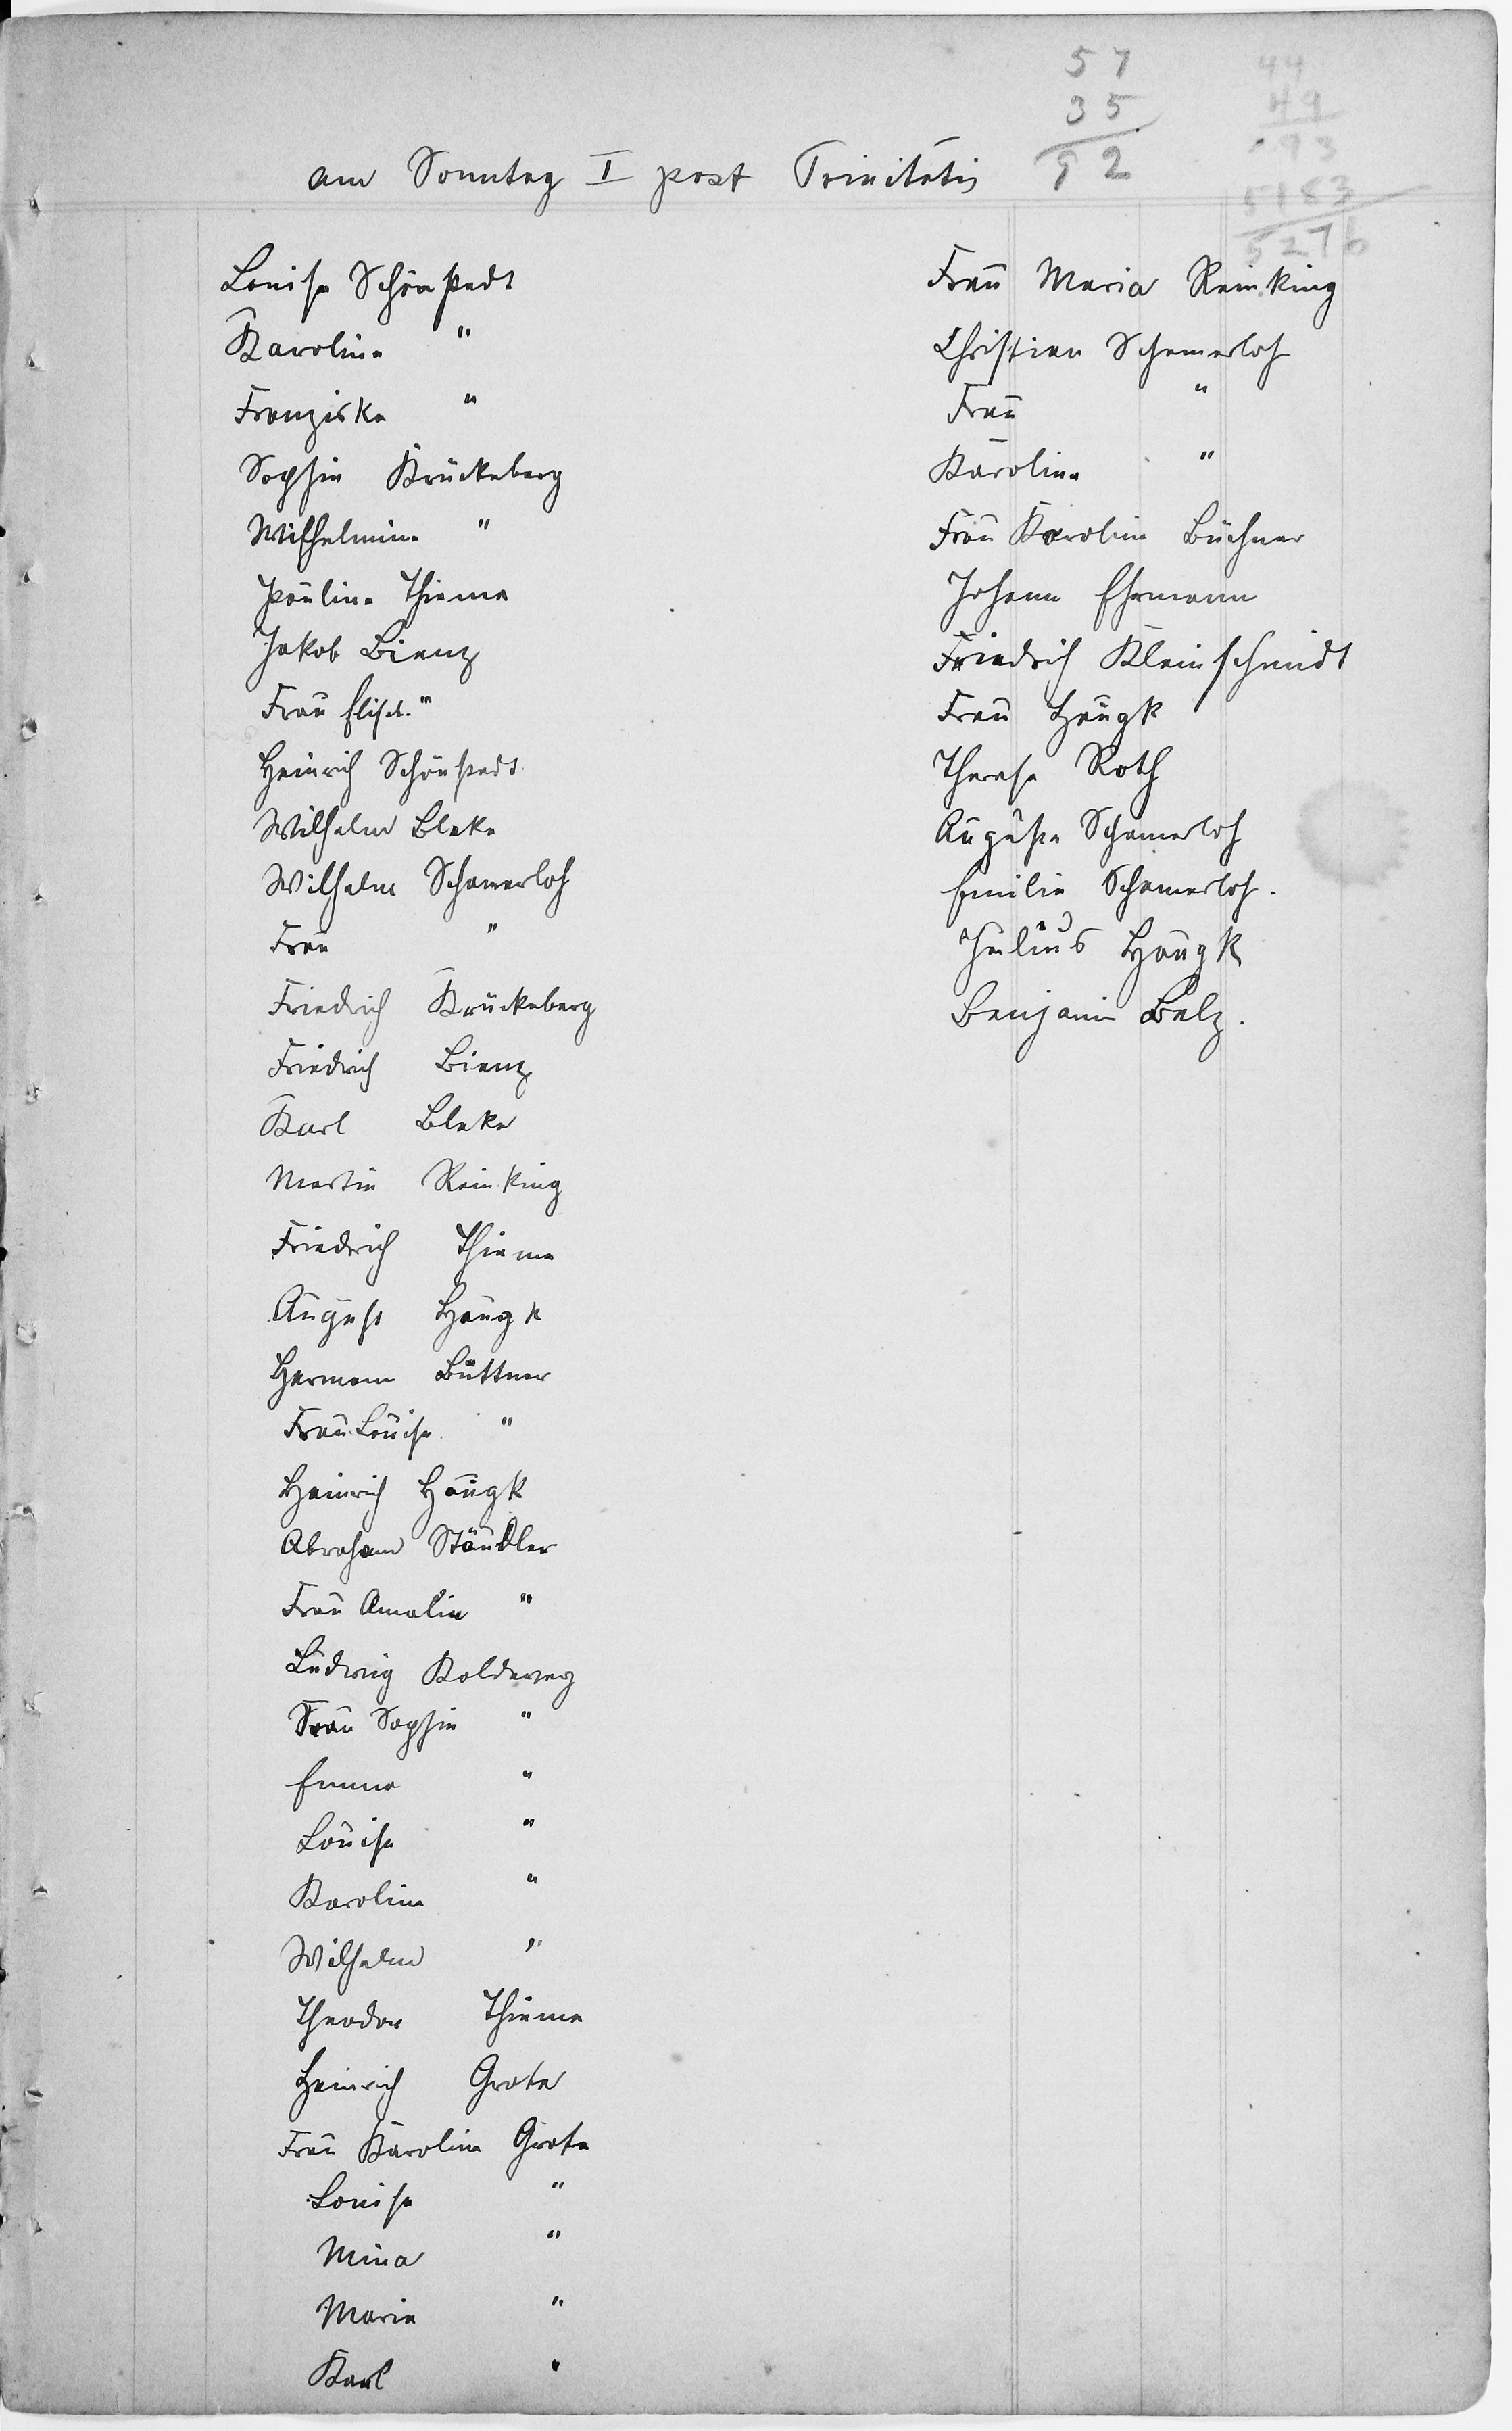 57
35
92
44
49
93
5183
5276
am Sonntag I post Trinitatis
Louise Schönstedt
Karoline "
Franziska "
Sophie Krückeberg
Wilhelmine "
Pauline Thieme
Jakob Bienz
Frau Elis. "
Heinrich Schönstedt
Wilhelm Bleke
Wilhelm Schamerloh
Frau "
Friedrich Krückeberg
Friedrich Bienz
Karl Bleke
Martin Reinking
Friedrich Thieme
August Haugk
Hermann Büttner
Frau Louise "
Heinrich Haugk
Abraham Stäudler
Frau Amalie "
Ludwig Koldewey
Frau Sophie "
Emma "
Louise "
Karoline "
Wilhelm "
Theodor Thieme
Heinrich Grote
Frau Karoline Grote
Louise "
Mina "
Marie "
Karl "
Frau Maria Reinking
Christian Schamerloh
Frau "
Karoline "
Frau Karoline Büchner
Johann Ehrmann
Friedrich Kleinschmidt
Frau Haugk
Therese Roth
Auguste Schamerloh
Emilie Schamerloh.
Julius Haugk
Benjamin Belz.